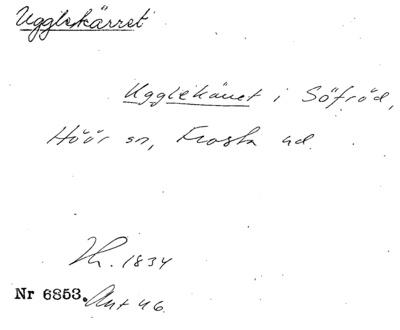 Ugglekärret
Ugglekärret i Söfröd,
Höör sn, Frosta hd.
1834
Nr 6853.